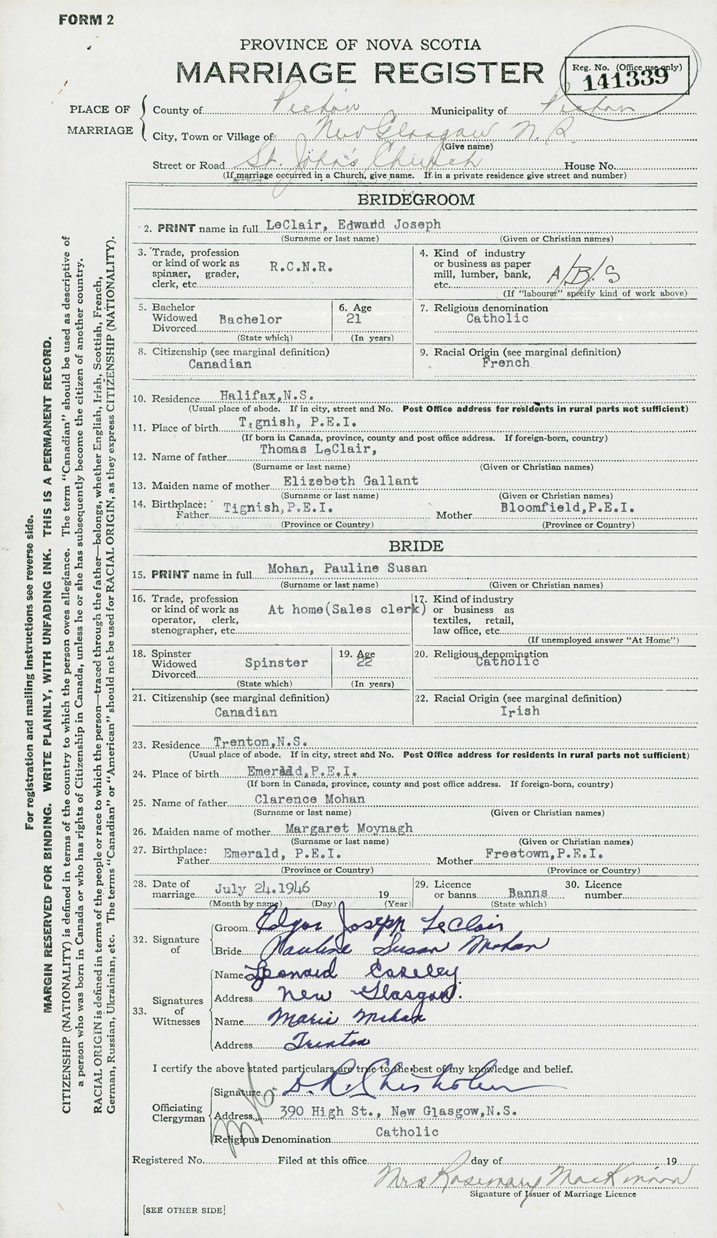 FORM 2
PROVINCE OF NOVA SCOTIA
MARRIAGE REGISTER
Reg. No. (Office use only)
141339
PLACE OF MARRIAGE
County of Pictou Municipality of Pictou
City, Town or Village of New Glasgow N.S.
(Give name)
Street or Road St. John's Church House No.
(If marriage occurred in a Church, give name. If in a private residence give street and number)
BRIDEGROOM
2. PRINT name in full LeClair, Edward Joseph
(Surname or last name) (Given or Christian names)
3. Trade, profession or kind of work as spinner, grader, clerk, etc. R.C.N.R.
4. Kind of industry or business as paper mill, lumber, bank, etc. A/B/S
(If "labourer" specify kind of work above)
5. Bachelor Widowed Divorced Bachelor
(State which)
6. Age 21
(In years)
7. Religious denomination
Catholic
8. Citizenship (see marginal definition)
Canadian
9. Racial Origin (see marginal definition)
French
10. Residence Halifax,N.S.
(Usual place of abode. If in city, street and No. Post Office address for residents in rural parts not sufficient)
11. Place of birth Tignish, P.E.I.
(If born in Canada, province, county and post office address. If foreign-born, country)
12. Name of father Thomas LeClair,
(Surname or last name) (Given or Christian names)
13. Maiden name of mother Elizebeth Gallant
(Surname or last name) (Given or Christian names)
14. Birthplace: Father Tignish,P.E.I. Mother Bloomfield,P.E.I.
(Province or Country) (Province or Country)
BRIDE
15. PRINT name in full Mohan, Pauline Susan
(Surname or last name) (Given or Christian names)
16. Trade, profession or kind of work as operator, clerk, stenographer, etc. At home(Sales clerk)
17. Kind of industry or business as textiles, retail, law office, etc.
(If unemployed answer "At Home")
18. Spinster Widowed Divorced Spinster
(State which)
19. Age 22
(In years)
20. Religious denomination
Catholic
21. Citizenship (see marginal definition)
Canadian
22. Racial Origin (see marginal definition)
Irish
23. Residence Trenton,N.S.
(Usual place of abode. If in city, street and No. Post Office address for residents in rural parts not sufficient)
24. Place of birth Emerald,P.E.I.
(If born in Canada, province, county and post office address. If foreign-born, country)
25. Name of father Clarence Mohan
(Surname or last name) (Given or Christian names)
26. Maiden name of mother Margaret Moynagh
(Surname or last name) (Given or Christian names)
27. Birthplace: Father Emerald, P.E.I. Mother Freetown,P.E.I.
(Province or Country) (Province or Country)
28. Date of marriage July 24.1946 19
(Month by name) (Day) (Year)
29. Licence or banns Banns
(State which)
30. Licence number
32. Signature of
Groom Edgar Joseph LeClair
Bride Pauline Susan Mohan
33. Signatures of Witnesses
Name Leonard
Address New Glasgow.
Name Marie Mohan
Address Trenton
I certify the above stated particulars are true to the best of my knowledge and belief.
Officiating Clergyman
Signature D. R. Chisholm
Address 390 High St., New Glasgow,N.S.
Religious Denomination Catholic
Registered No. Filed at this office day of 19
Mrs Rosemary MacKinnon
Signature of Issuer of Marriage Licence
[SEE OTHER SIDE]
For registration and mailing instructions see reverse side.
MARGIN RESERVED FOR BINDING. WRITE PLAINLY, WITH UNFADING INK. THIS IS A PERMANENT RECORD.
CITIZENSHIP (NATIONALITY) is defined in terms of the country to which the person owes allegiance. The term "Canadian" should be used as descriptive of
a person who was born in Canada or who has rights of Citizenship in Canada, unless he or she has subsequently become the citizen of another country.
RACIAL ORIGIN is defined in terms of the people or race to which the person—traced through the father—belongs, whether English, Irish, Scottish, French,
German, Russian, Ukrainian, etc. The terms "Canadian" or "American" should not be used for RACIAL ORIGIN, as they express CITIZENSHIP (NATIONALITY).